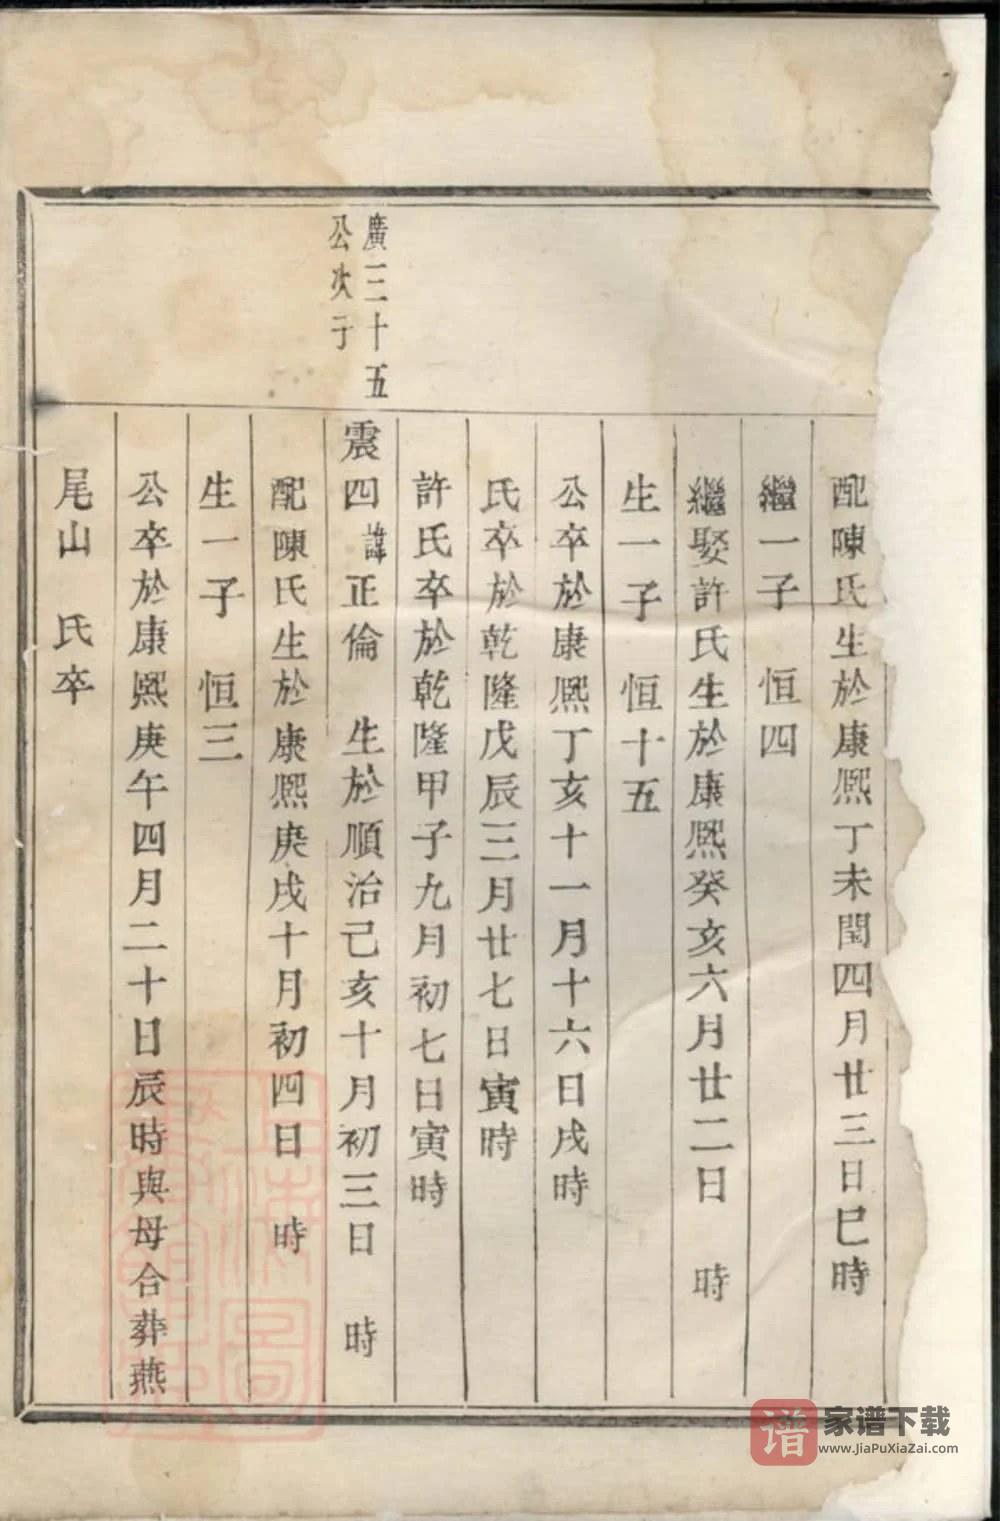 配陳氏生於康熙丁未閏四月廿三日巳時
繼一子 恒四
繼娶許氏生於康熙癸亥六月廿二日 時
生一子 恒十五
公卒於康熙丁亥十一月十六日戌時
氏卒於乾隆戊辰三月廿七日寅時
許氏卒於乾隆甲子九月初七日寅時
廣三十五
公次子
震四 諱正倫 生於順治己亥十月初三日 時
配陳氏生於康熙庚戌十月初四日 時
生一子 恒三
公卒於康熙庚午四月二十日辰時與母合葬燕
尾山 氏卒
上海圖
書館藏
谱 家谱下载
www.JiaPuXiaZai.com